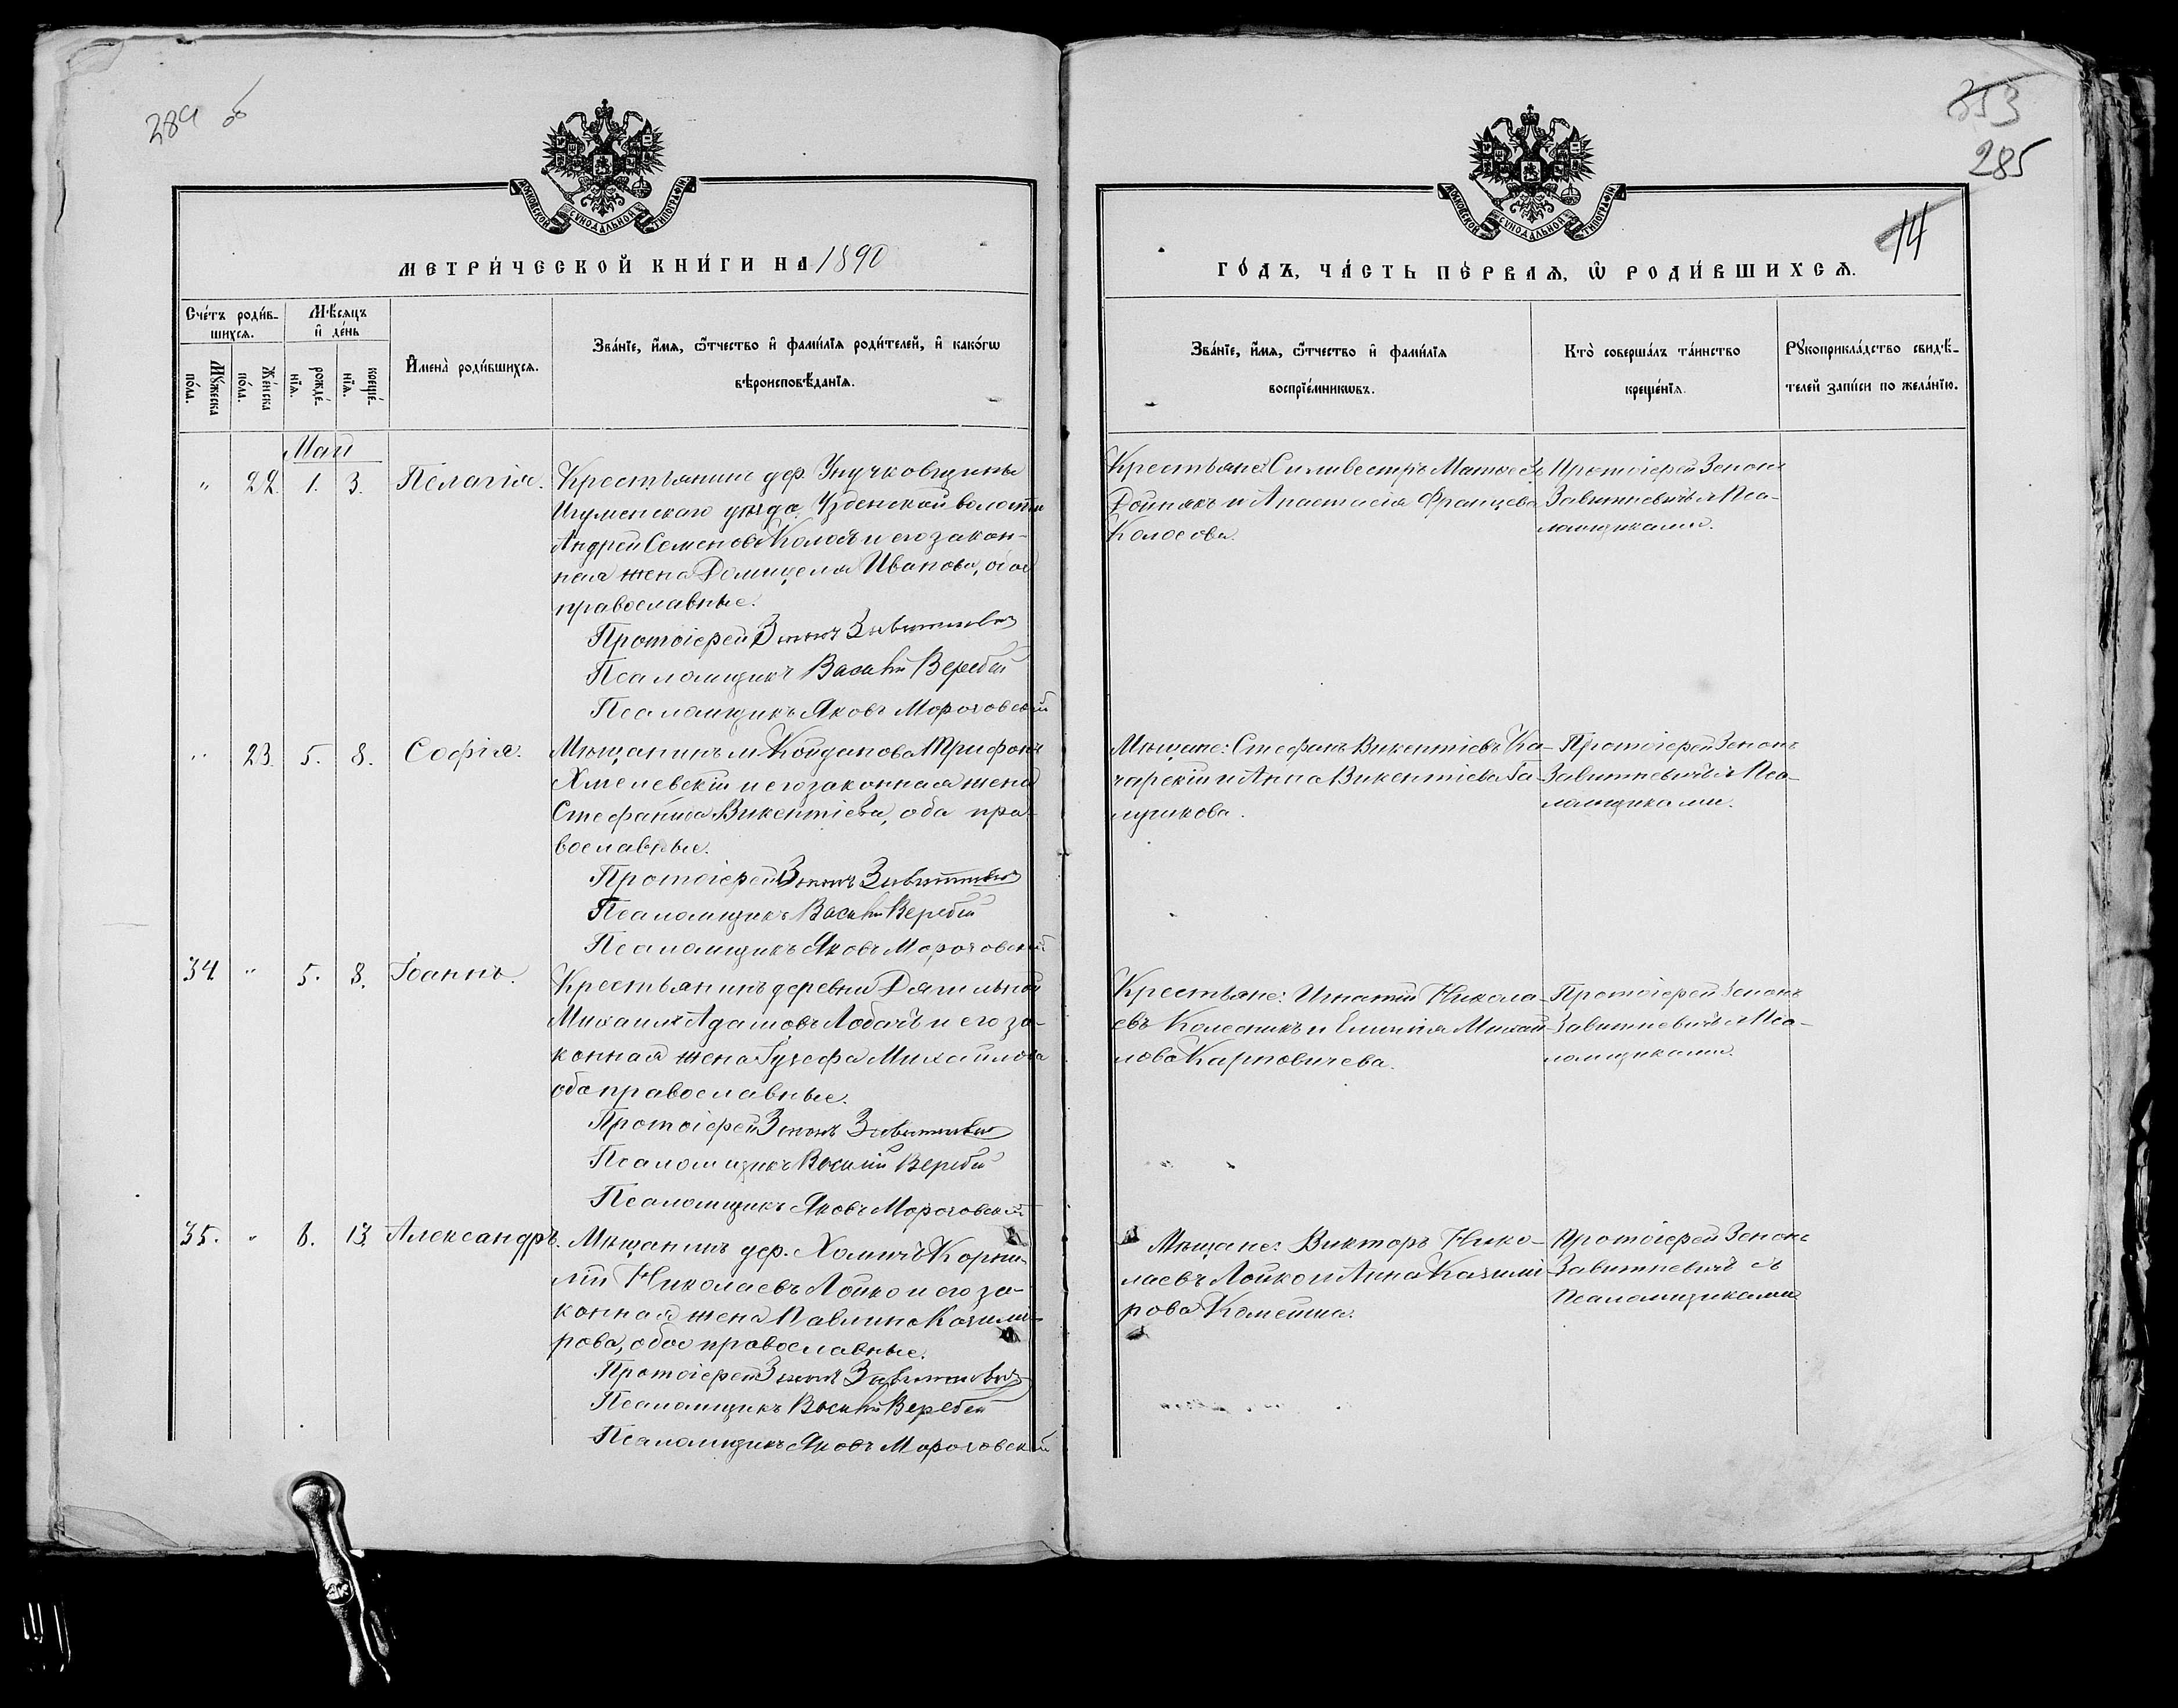 284 об
МОСКОВСКОЙ СѴНОДАЛЬНОЙ ТИПОГРАФІИ
МЕТРИ́ЧЕСКОЙ КНИ́ГИ НА 1890
Сче́тъ роди́в-
шихсѧ.
Мѣ́сѧцъ
и҆ де́нь
Мꙋ́жеска
по́ла.
Же́нска
по́ла.
рожде́-
нїѧ.
креще́-
нїѧ.
И҆мена̀ роди́вшихсѧ.
Зва́нїе, и҆́мѧ, ѻ҆́тчество и҆ фами́лїѧ роди́телей, и҆ како́гѡ
вѣроисповѣ́данїѧ.
Май
" 22. 1. 3. Пелагія.
Крестьянинъ дер.
Игуменскаго уѣзда Узденской волости
Андрей Семеновъ Колосъ и его закон-
ная жена Домицеля Иванова, оба
православные.
Протоіерей Зенонъ Завитневичъ
Псаломщикъ Василій Веребей
Псаломщикъ Яковъ Мороховскій
" 23. 5. 8. Софія.
Мѣщанинъ м. Койданова Трифонъ
Хмелевскій и его законная жена
Стефанида Викентіева, оба пра-
вославные.
Протоіерей Зенонъ Завитневичъ
Псаломщикъ Василій Веребей
Псаломщикъ Яковъ Мороховскій
34 " 5. 8. Іоаннъ.
Крестьянинъ деревни Дягильной
Михаилъ Адамовъ Лобачъ и его за-
конная жена Іузефа Михайлова
оба православные.
Протоіерей Зенонъ Завитневичъ
Псаломщикъ Василій Веребей
Псаломщикъ Яковъ Мороховскій
35. " 6. 13. Александръ.
Мѣщанинъ дер. Хомичъ Корни-
лій Николаевъ Лойко и его за-
конная жена Павлина Казими-
рова, обое православные.
Протоіерей Зенонъ Завитневичъ
Псаломщикъ Василій Веребей
Псаломщикъ Яковъ Мороховскій
353
285
14
МОСКОВСКОЙ СѴНОДАЛЬНОЙ ТИПОГРАФІИ
ГО́ДЪ, ЧА́СТЬ ПЕ́РВАѦ, Ѽ РОДИ́ВШИХСѦ.
Зва́нїе, и҆́мѧ, ѻ҆́тчество и҆ фами́лїѧ
воспрїе́мникѡвъ.
Кто̀ соверша́лъ та́инство
креще́нїѧ.
Рꙋкоприкла́дство свидѣ́-
телей за́писи по жела́нїю.
Крестьяне: Сильвестръ Матѳеевъ
и Анастасія Францева
Колосова.
Протоіерей Зенонъ
Завитневичъ съ Пса-
ломщиками.
Мѣщане: Стефанъ Викентіевъ Ка-
чарскій и Анна Викентіева Га-
Протоіерей Зенонъ
Завитневичъ съ Пса-
ломщиками.
Крестьяне: Игнатій Никола-
евъ Колесникъ и Емилія Михай-
лова Карповичева.
Протоіерей Зенонъ
Завитневичъ съ Пса-
ломщиками.
Мѣщане: Викторъ Нико-
лаевъ Лойко и Анна Казими-
рова Комейша.
Протоіерей Зенонъ
Завитневичъ съ
Псаломщиками